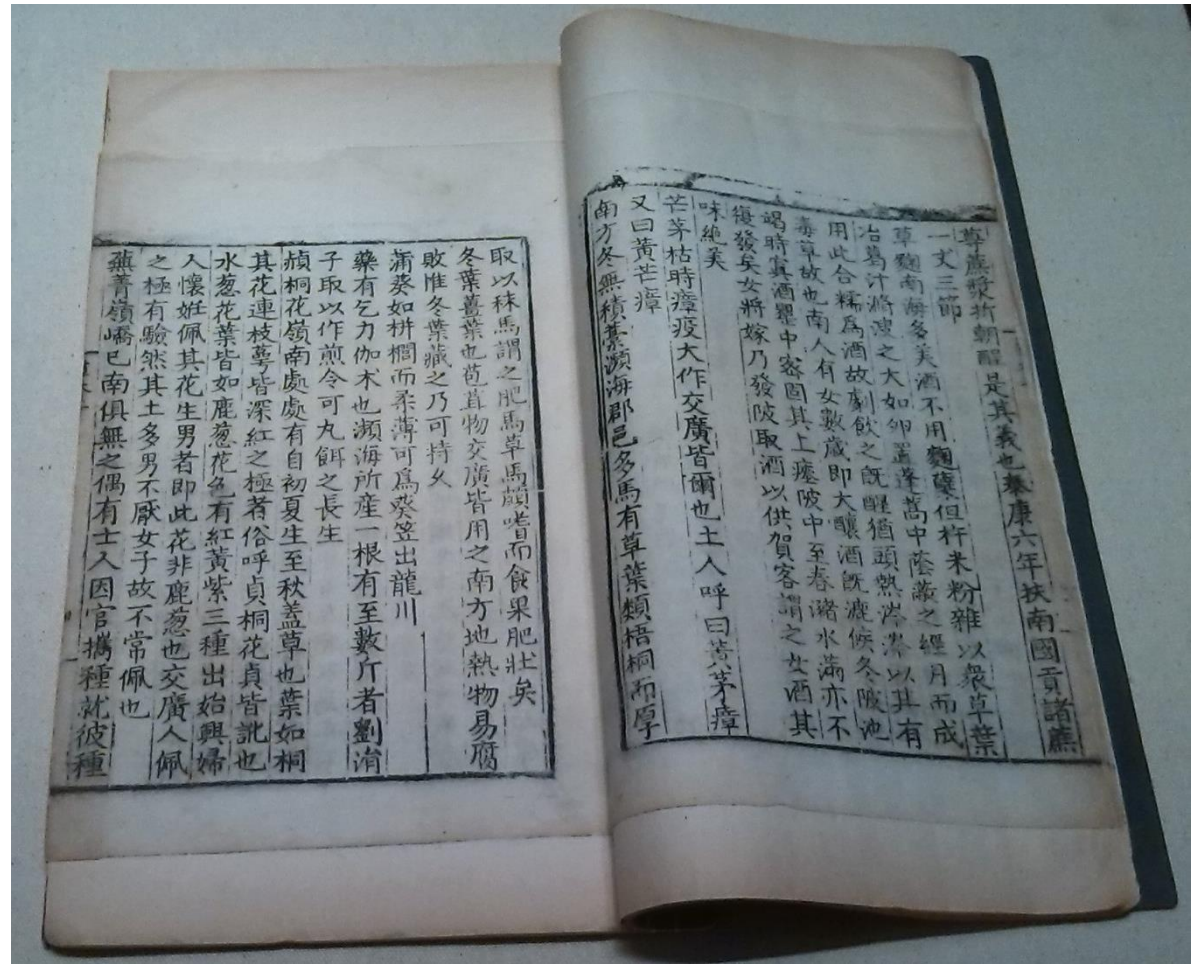 草蔗漿折朝酲是其義也泰康六年扶南國貢諸蔗
一丈三節
草麴南海多美酒不用麴蘗但杵米粉雜以衆草葉
冶葛汁滫溲之大如卵置蓬蒿中蔭蔽之經月而成
用此合糯爲酒故劇飲之旣醒猶頭熱涔涔以其有
毒草故也南人有女數歲即大釀酒旣漉候冬陂池
竭時寘酒罌中密固其上瘞陂中至春瀦水滿亦不
復發矣女將嫁乃發陂取酒以供賀客謂之女酒其
味絶美
芒茅枯時瘴疫大作交廣皆爾也土人呼曰黃茅瘴
又曰黃芒瘴
南方冬無積藁瀕海郡邑多馬有草葉類梧桐而厚
取以秣馬謂之肥馬草馬頗嗜而食果肥壯矣
冬葉薑葉也苞苴物交廣皆用之南方地熱物易腐
敗惟冬葉藏之乃可持久
蒲葵如栟櫚而柔薄可爲葵笠出龍川
藥有乞力伽木也瀕海所産一根有至數斤者劉涓
子取以作煎令可丸餌之長生
赬桐花嶺南處處有自初夏生至秋蓋草也葉如桐
其花連枝萼皆深紅之極者俗呼貞桐花貞皆訛也
水葱花葉皆如鹿葱花色有紅黃紫三種出始興婦
人懷妊佩其花生男者即此花非鹿葱也交廣人佩
之極有驗然其土多男不厭女子故不常佩也
蕪菁嶺嶠已南俱無之偶有士人因官攜種就彼種